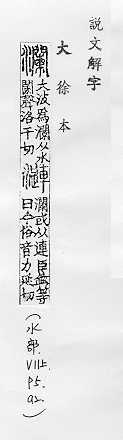 說文解字
大徐本
瀾 大波為瀾从水
闌聲洛干切
漣 瀾或从連臣鉉等
曰今俗音力延切
(水部. VII上. P5. a2.)